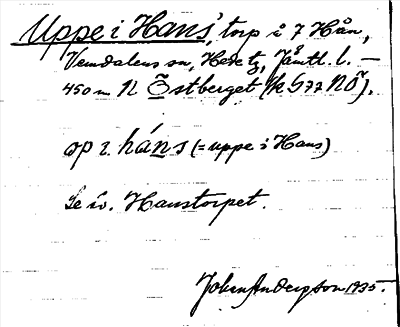 Uppe i Hans', torp i 7 Hån,
Vemdalens sn, Hede tg, Jämtl. l. —
450 m N Östberget (K G77 NÖ).
op i. háns (= uppe i Hans)
Se äv. Hanstorpet.
Johan Anderson 1935.